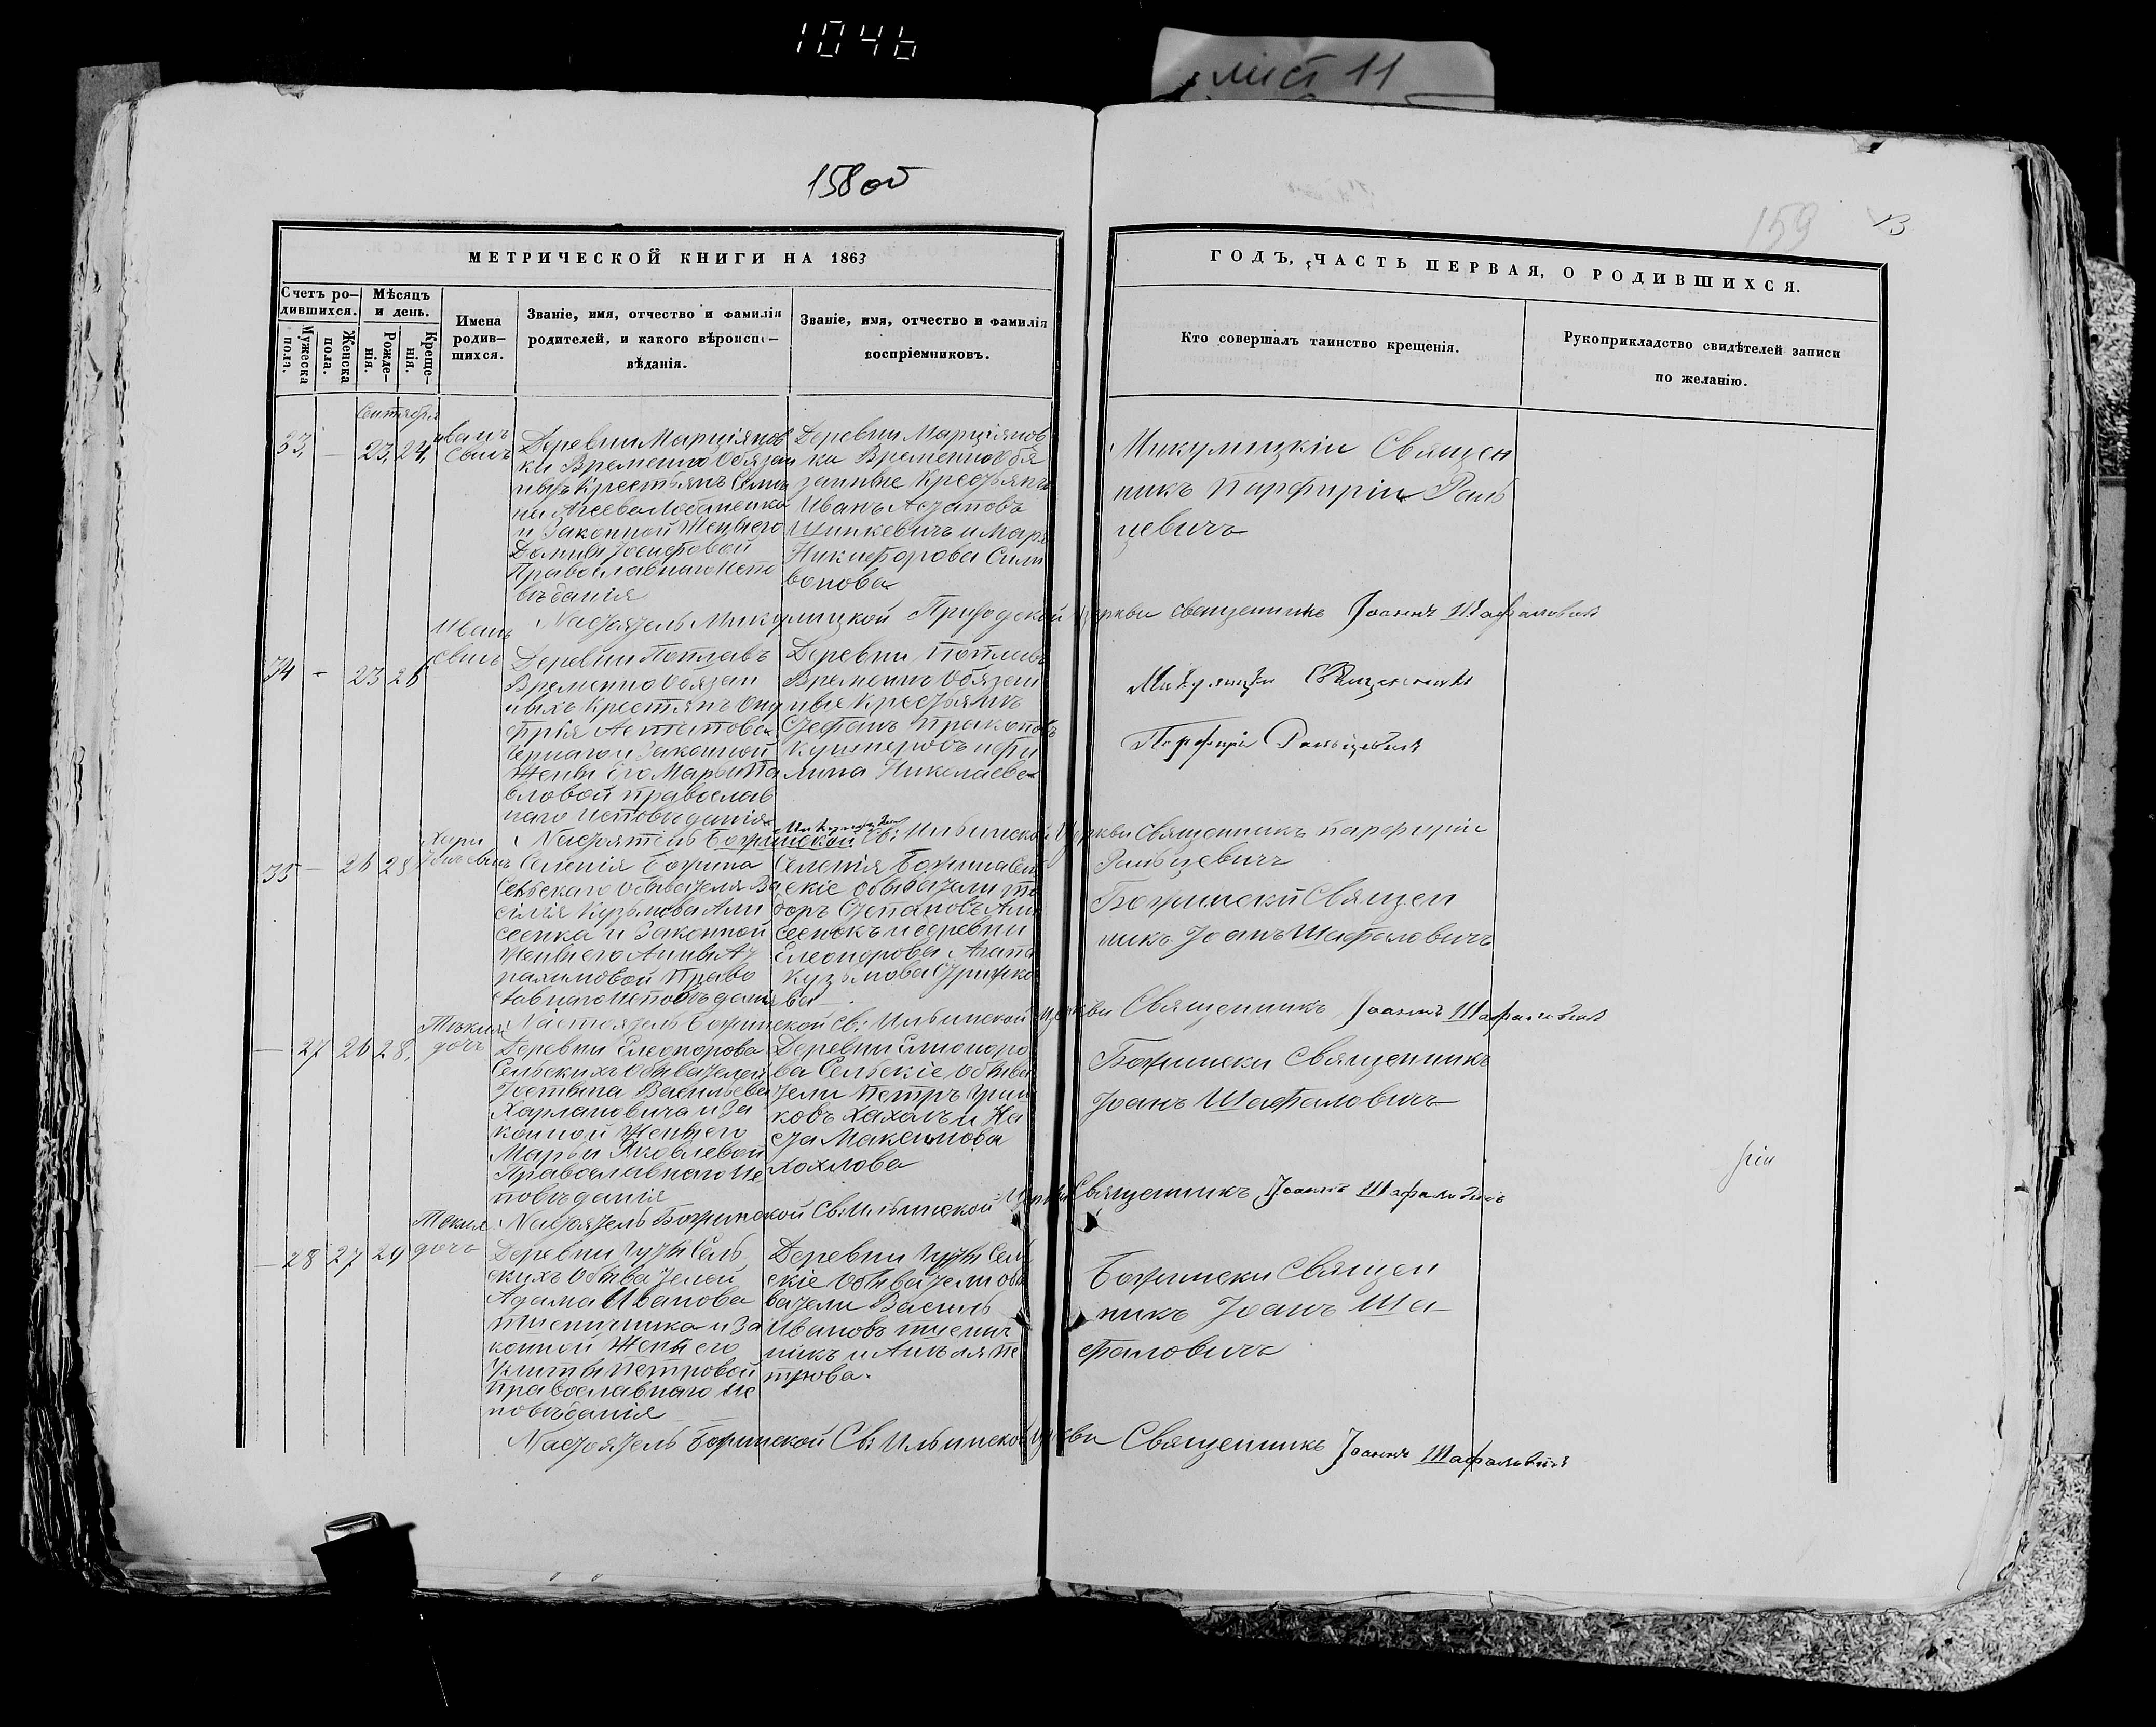 1046
лист 11
158 об
159
13
МЕТРИЧЕСКОЙ КНИГИ НА 1863
ГОДЪ, ЧАСТЬ ПЕРВАЯ, О РОДИВШИХСЯ.
Счетъ ро-
дившихся.
Мужеска
пола.
Женска
пола.
Мѣсяцъ
и день.
Рожде-
нія.
Креще-
нія.
Имена
родив-
шихся.
Званіе, имя, отчество и фамилія
родителей, и какого вѣроиспо-
вѣданія.
Званіе, имя, отчество и фамилія
воспріемниковъ.
Кто совершалъ таинство крещенія.
Рукоприкладство свидѣтелей записи
по желанію.
Сентября
33, — 23, 24,
Иванъ
Сынъ
Деревни Марціянов
ки Временно Обязан
ныхъ Крестьянъ
и Законной Жены его
Домны Іосифовой
Православнаго Испо
вѣданія
Деревни Марціянов
ки Временно Обя
занные Крестьянъ
Иванъ Астаповъ
Шинкевичъ и Марья
Никифорова Сили
вонова
Микулицкіи Священ
никъ Парфиріи Раль
цевичъ
Настоятель Микулицкой Приходской Церкви священникъ Іоаннъ Шафаловичъ
34 - 23 26
Иванъ
сынъ
Деревни Поплавъ
Временно Обязан
ныхъ Крестянъ Ону
фрія
и Законной
Жены Его Марьи Па
вловой православ
наго исповѣданія
Деревни Поплавъ
Временно Обязан
ные Крестьянъ
Стефанъ Пракоповъ
Кушнеровъ и
Николаева
Микулицкіи Священникъ
Парфирі Ральцевичъ
Настоятель Божинской Св: Ильинской Церкви Священникъ Парфиріи
Ральцевичъ
35 — 26 28
Селенія Божина
Сельскаго Обывателя Ва
силія Кузьмова Али
сеенка и Законной
Жены его Анны
Право
славнаго исповѣданія
Селенія Божина Сель
скіе обыватели
Степановъ Али
сеенокъ и деревни
Елеонорова Агапа
Кузьмова
Божински Священ
никъ Іоанъ Шафаловичъ
Настоятель Божинской Св: Ильинской Церкви Священникъ Іоаннъ Шафаловичъ
— 27 26 28,
Текля
дочь
Деревни Елеонорова
Сельскихъ Обывателей
Устина Васильева
Харлановича и За
конной Жены его
Марьи Яковлевой
Православнаго Ис
повѣданія
Деревни Елионоро
ва Сельскіе Обыва
тели Петръ
ковъ Хахолъ и На
ста Максимова
Хохлова
Божински Священникъ
Іоанъ Шафаловичъ
Настоятель Божинской Св: Ильинской Церкви Священникъ Іоаннъ Шафаловичъ
— 28 27 29
Текля
дочь
Деревни Гуты Сель
скихъ Обывателей
Адама Иванова
Пшеничника и За
конной Жены его
Улиты Петровой
Православнаго Ис
повѣданія
Деревни Гуты Сель
скіе Обыватели обы
ватели Василь
Ивановъ пшенич
никъ и Пе
трова.
Божински Священ
никъ Іоанъ Ша-
фаловичъ
Настоятель Божинской Св: Ильинской Церкви Священникъ Іоаннъ Шафаловичъ